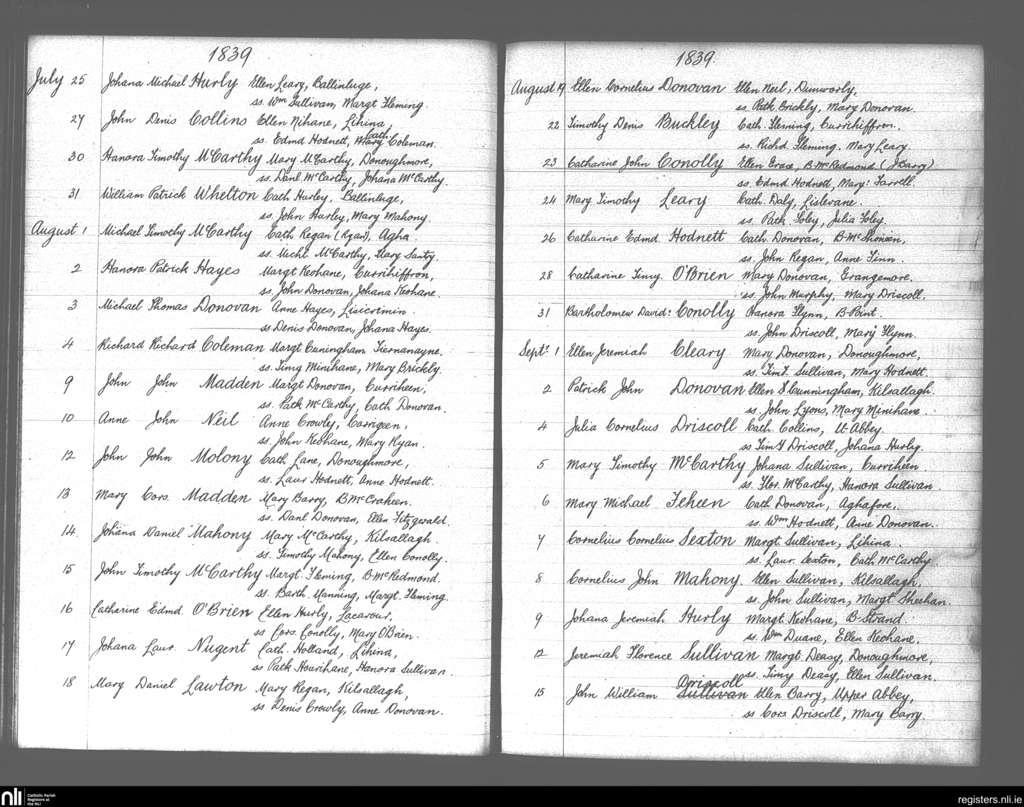 1839
July 25 Johana Michael Hurly Ellen Leary, Ballinluge,
ss. Wm Sullivan, Margt Fleming.
27 John Denis Collins Ellen Nihane, Lihina,
Cath
ss. Edmd Hodnett, Mary Coleman.
30 Hanora Timothy McCarthy Mary McCarthy, Donoughmore,
ss. Danl McCarthy, Johana McCarthy.
31 William Patrick Whelton Cath Hurley, Ballinluge,
ss. John Hurley, Mary Mahony.
August 1 Michael Timothy McCarthy Cath Regan (Ryan), Agha.
ss. Michl McCarthy, Mary Santy.
2 Hanora Patrick Hayes Margt Keohane, Currihiffron,
ss. John Donovan, Johana Keohane.
3 Michael Thomas Donovan Anne Hayes, Lisicrimin.
ss Denis Donovan, Johana Hayes.
4 Richard Richard Coleman Margt Cuningham Tiernanayne.
ss. Timy Minihane, Mary Brickly.
9 John John Madden Margt Donovan, Curriheen,
ss. Patk McCarthy, Cath Donovan.
10 Anne John Neil Anne Crowly, Corrigeen,
ss. John Keohane, Mary Ryan.
12 John John Molony Cath Lane, Donoughmore,
ss. Laur Hodnett, Anne Hodnett.
13 Mary Cors. Madden Mary Barry, B.McCroheen.
ss. Danl Donovan, Ellen Fitzgerald.
14. Johana Daniel Mahony Mary McCarthy, Kilsallagh.
ss. Timothy Mahony, Ellen Conolly.
15 John Timothy McCarthy Margt. Fleming, B.McRedmond.
ss. Barth. Manning, Margt. Fleming.
16 Catharine Edmd. O'Brien Ellen Hurly, Lacarour.
ss Cors. Conolly, Mary O'Brien.
17 Johana Laur. Nugent Cath. Holland, Lihina,
ss Patk Hourihane, Hanora Sullivan.
18 Mary Daniel Lawton Mary Regan, Kilsallagh,
ss Denis Crowly, Anne Donovan.
1839.
August 19 Ellen Cornelius Donovan Ellen Neil, Dunworly,
ss. Patk Brickly, Mary Donovan.
22 Timothy Denis Buckley Cath. Fleming, Currihiffron,
ss. Richd Fleming, Mary Leary.
23 Catharine John Conolly Ellen Grace, B.McRedmond (J Barry)
ss. Edmd Hodnett, Mary Farrell.
24 Mary Timothy Leary Cath. Daly, Lislevane.
ss. Patk Foley, Julia Foley.
26 Catharine Edmd Hodnett Cath. Donovan,
ss. John Regan, Anne Finn.
28 Catharine Timy. O'Brien Mary Donovan, Grangemore.
ss. John Murphy, Mary Driscoll.
31 Bartholomew David: Conolly Hanora Flynn, B-Point.
ss. John Driscoll, Mary Flynn.
Sept. 1 Ellen Jeremiah Cleary Mary Donovan, Donoughmore,
ss. Sullivan, Mary Hodnett.
2 Patrick John Donovan Ellen S Cunningham, Kilsallagh.
ss. John Lyons, Mary Minihane.
4 Julia Cornelius Driscoll Cath. Collins, Ut Abbey.
ss Driscoll, Johana Hurly.
5 Mary Timothy McCarthy Johana Sullivan, Curriheen.
ss. Flor. McCarthy, Hanora Sullivan.
6 Mary Michael Feheen Cath Donovan, Aghafore,
ss. Wm Hodnett, Anne Donovan.
7 Cornelius Cornelius Sexton Margt Sullivan, Lihina.
ss. Laur. Sexton, Cath McCarthy.
8 Cornelius John Mahony Ellen Sullivan, Kilsallagh,
ss. John Sullivan, Margt Sheehan.
9 Johana Jeremiah Hurly Margt Keohane, B-Strand.
ss. Wm Duane, Ellen Keohane.
12 Jeremiah Florence Sullivan Margt. Deasy, Donoughmore,
ss. Timy Deasy, Ellen Sullivan.
Driscoll
15 John William Sullivan Ellen Barry, Upper Abbey,
ss Cors Driscoll, Mary Barry.
nli Catholic Parish Registers at the NLI
registers.nli.ie